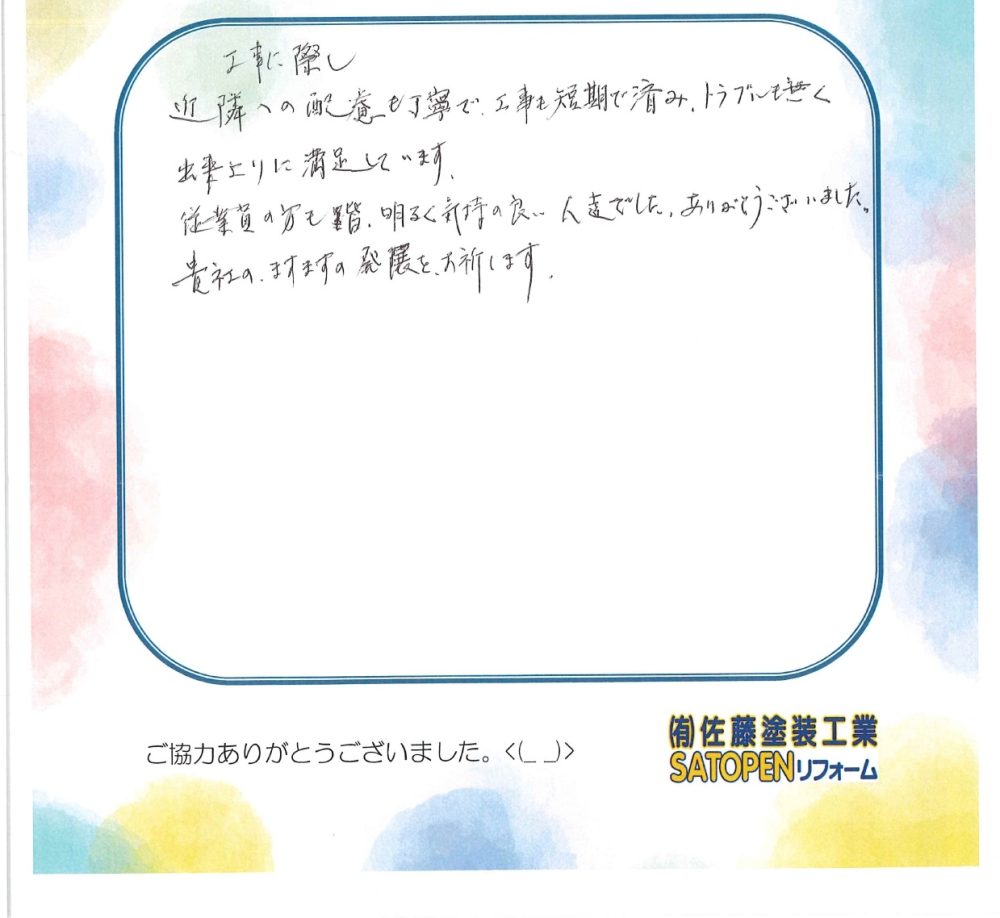 工事に際し
近隣への配慮も丁寧で、工事も短期で済み、トラブルも無く
出来上りに満足しています。
従業員の方も皆、明るく気持の良い人達でした。ありがとうございました。
貴社の、ますますの発展を、お祈します。
ご協力ありがとうございました。<(_ _)>
㈲佐藤塗装工業
SATOPENリフォーム